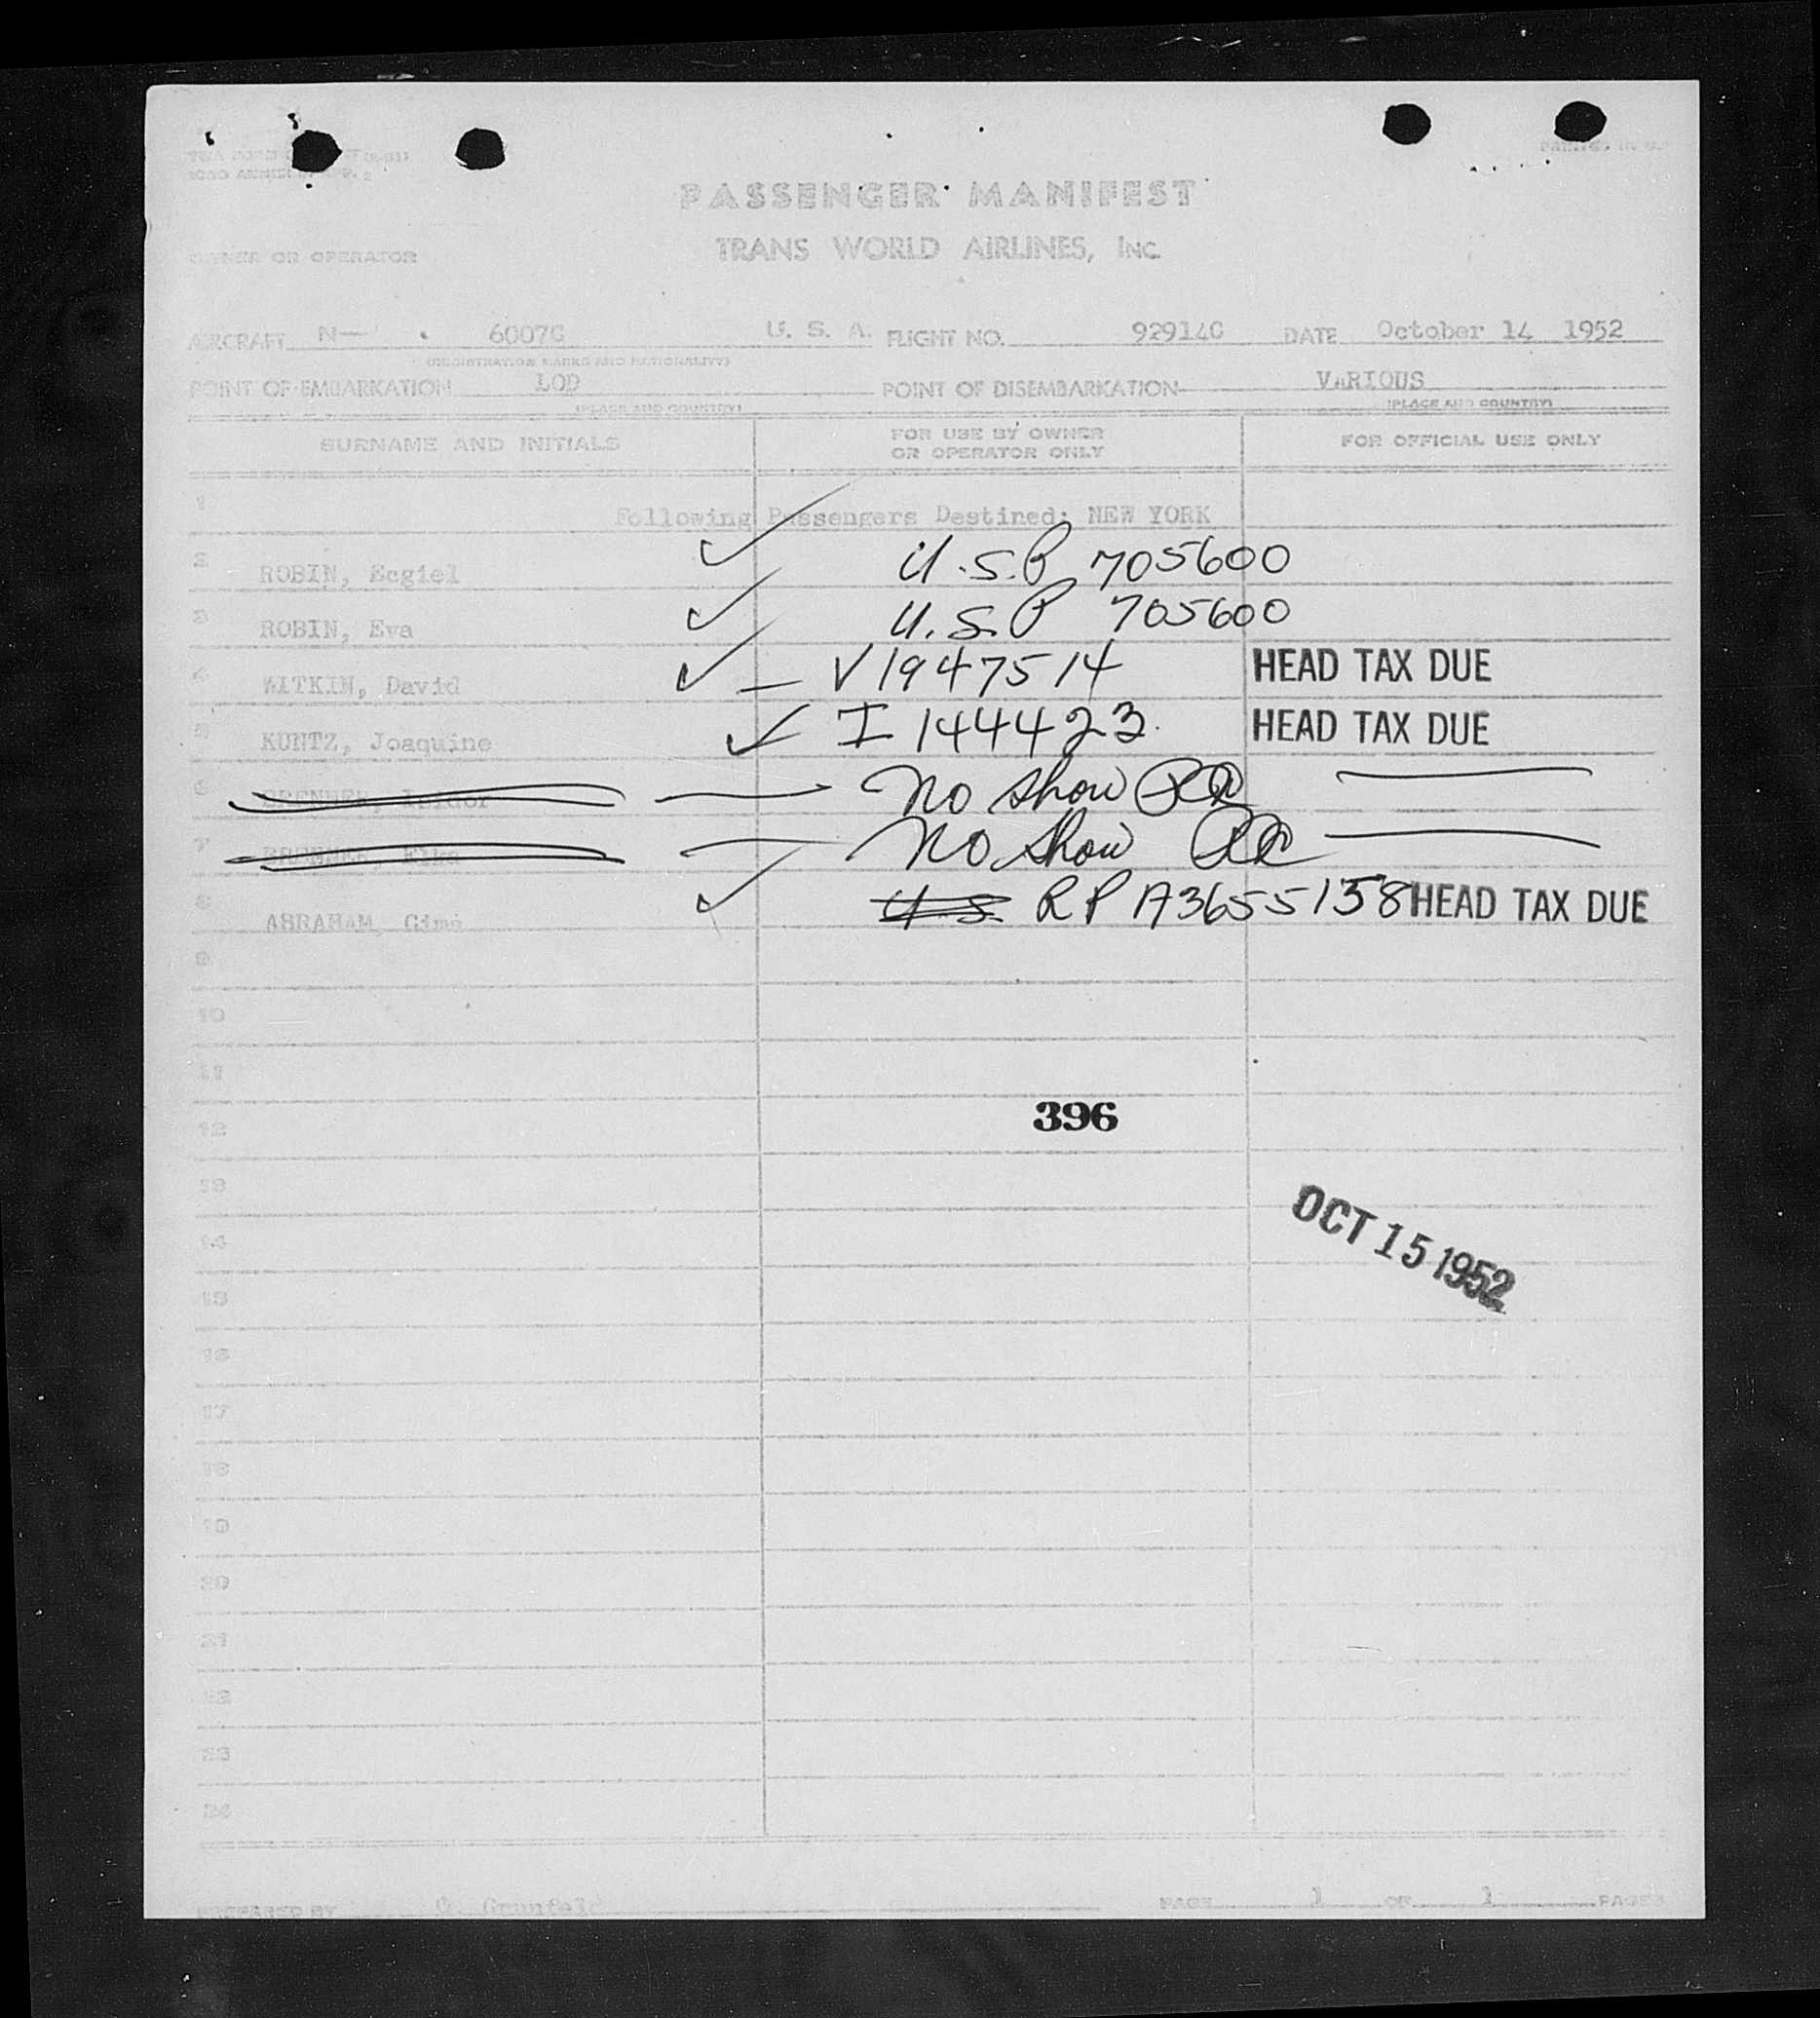 PASSENGER MANIFEST
TRANS WORLD AIRLINES, INC.
OWNER OR OPERATOR
AIRCRAFT N— 6007C U. S. A. FLIGHT NO. 92914C DATE October 14 1952
(REGISTRATION MARKS AND NATIONALITY)
POINT OF EMBARKATION LOD POINT OF DISEMBARKATION VARIOUS
(PLACE AND COUNTRY) (PLACE AND COUNTRY)
SURNAME AND INITIALS FOR USE BY OWNER OR OPERATOR ONLY FOR OFFICIAL USE ONLY
1 Following Passengers Destined: NEW YORK
2 ROBIN, Ecgiel ✓ U.S.P 705600
3 ROBIN, Eva ✓ U.S.P 705600
4 WITKIN, David ✓ — V1947514 HEAD TAX DUE
5 KUNTZ, Joaquine ✓ I 144423 HEAD TAX DUE
6 BRENNER, Isidor — No Show —
7 BRENNER, Elka — No Show —
8 ABRAHAM, ✓ U.S. RP A3655158 HEAD TAX DUE
9
10
11
396
12
13
OCT 15 1952
14
15
16
17
18
19
20
21
22
23
24
PREPARED BY Grunfeld PAGE 1 OF 1 PAGES